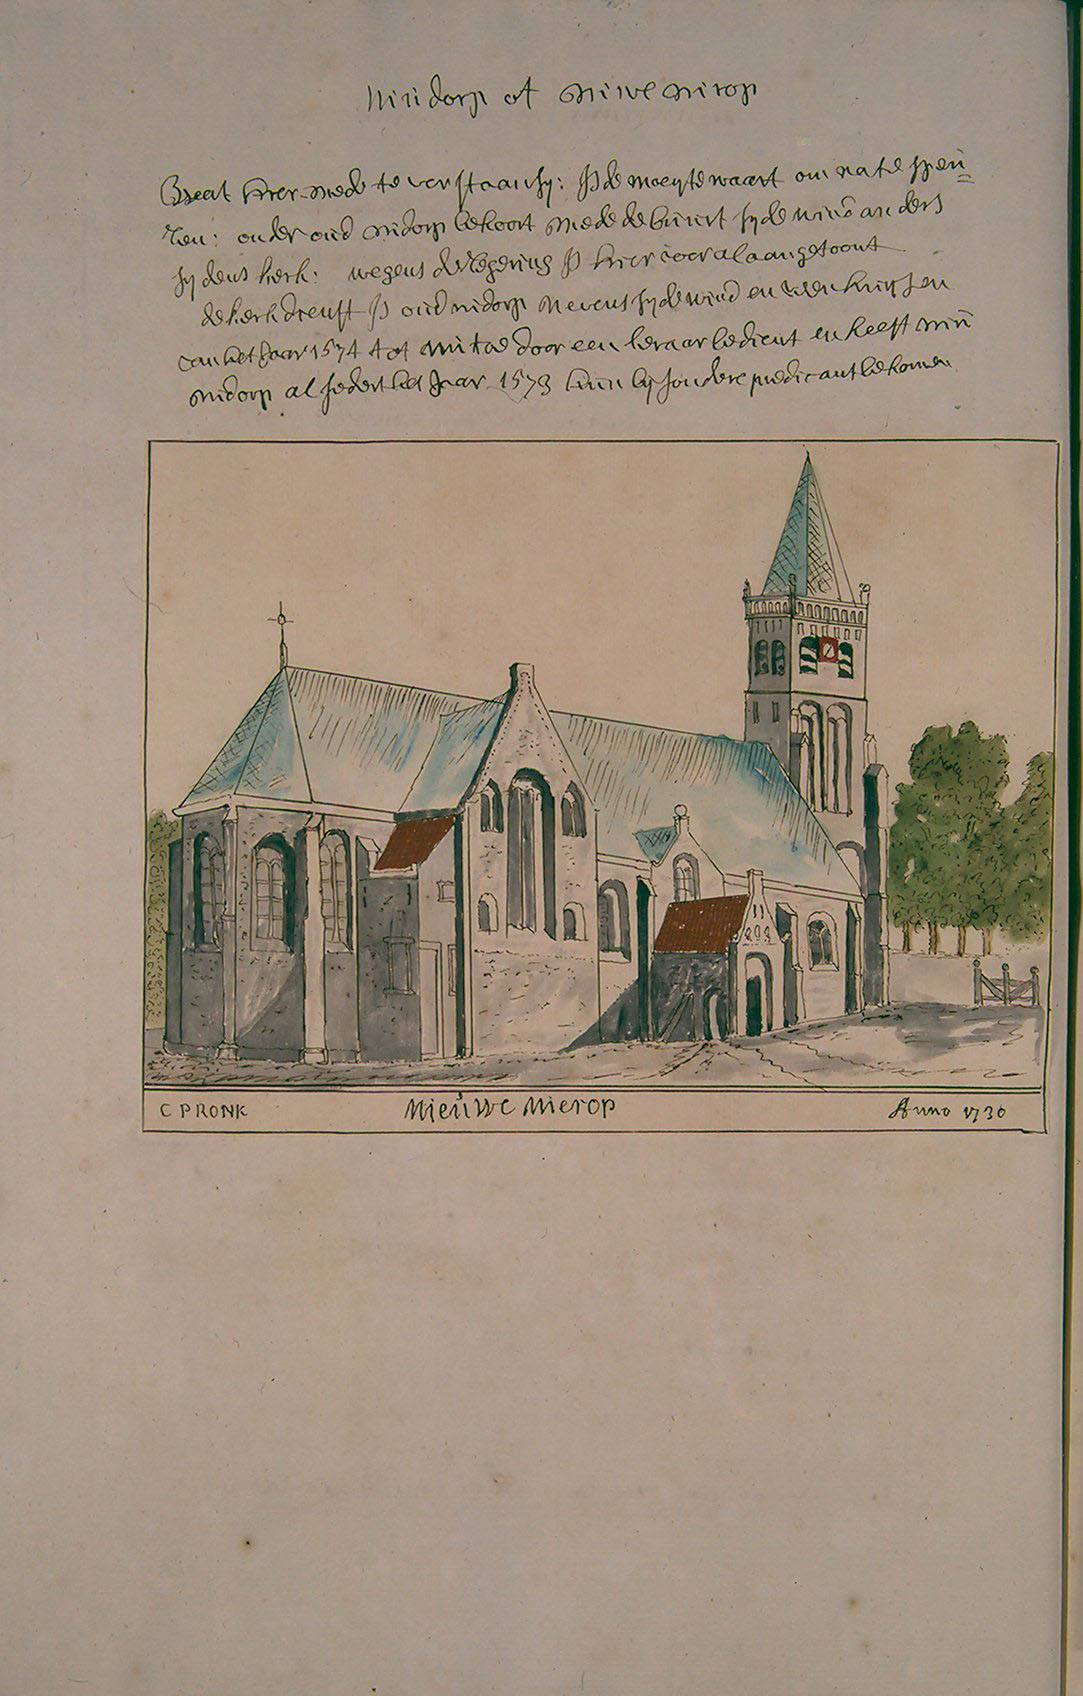 Niudorp of Niwe Nirop
hier mede te verstaan sy: Js de moeyte waart om na te speu
ren: onder oud Nidorp behoort mede de buurt syde wind anders
sydens kerk: wegens de regering Js hier vooral aangetoont
de kerkdienst Js oud nidorp Nevens syde wind en veenhuysen
van het Jaar 1574 tot nu toe door een leraar bedient en heeft niu
nidorp al sedert het Jaar 1573 hun bysondere predicant bekomen
C PRONK Nieuwe Nierop Anno 1730